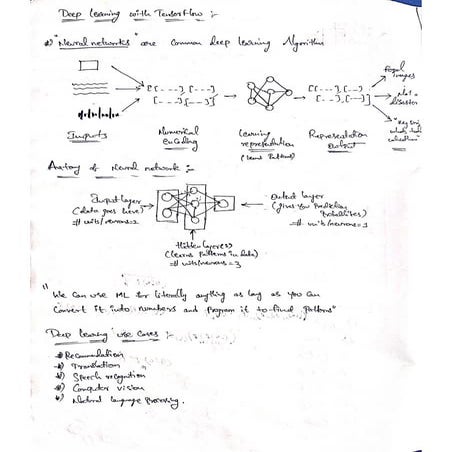 Deep Learning with TensorFlow :-
"Neural networks" are Common deep learning Algorithm
[[---], [[---],
[---]] [---]]
Not
disaster
Inputs Numerical encoding Learning representation Representation output
(learns patterns)
Anatomy of Neural network :-
Input layer Output layer
(data goes here) (gives you prediction probabilities)
=# units/neurons=2 =# units/neurons=1
Hidden layer(s)
(learns patterns in data)
=# units/neurons=3
"We can use ML for literally anything as long as you can
Convert it into numbers and program it to find patterns"
Deep learning use cases :-
Recommendation
Translation
Speech recognition
Computer vision
Natural language processing.